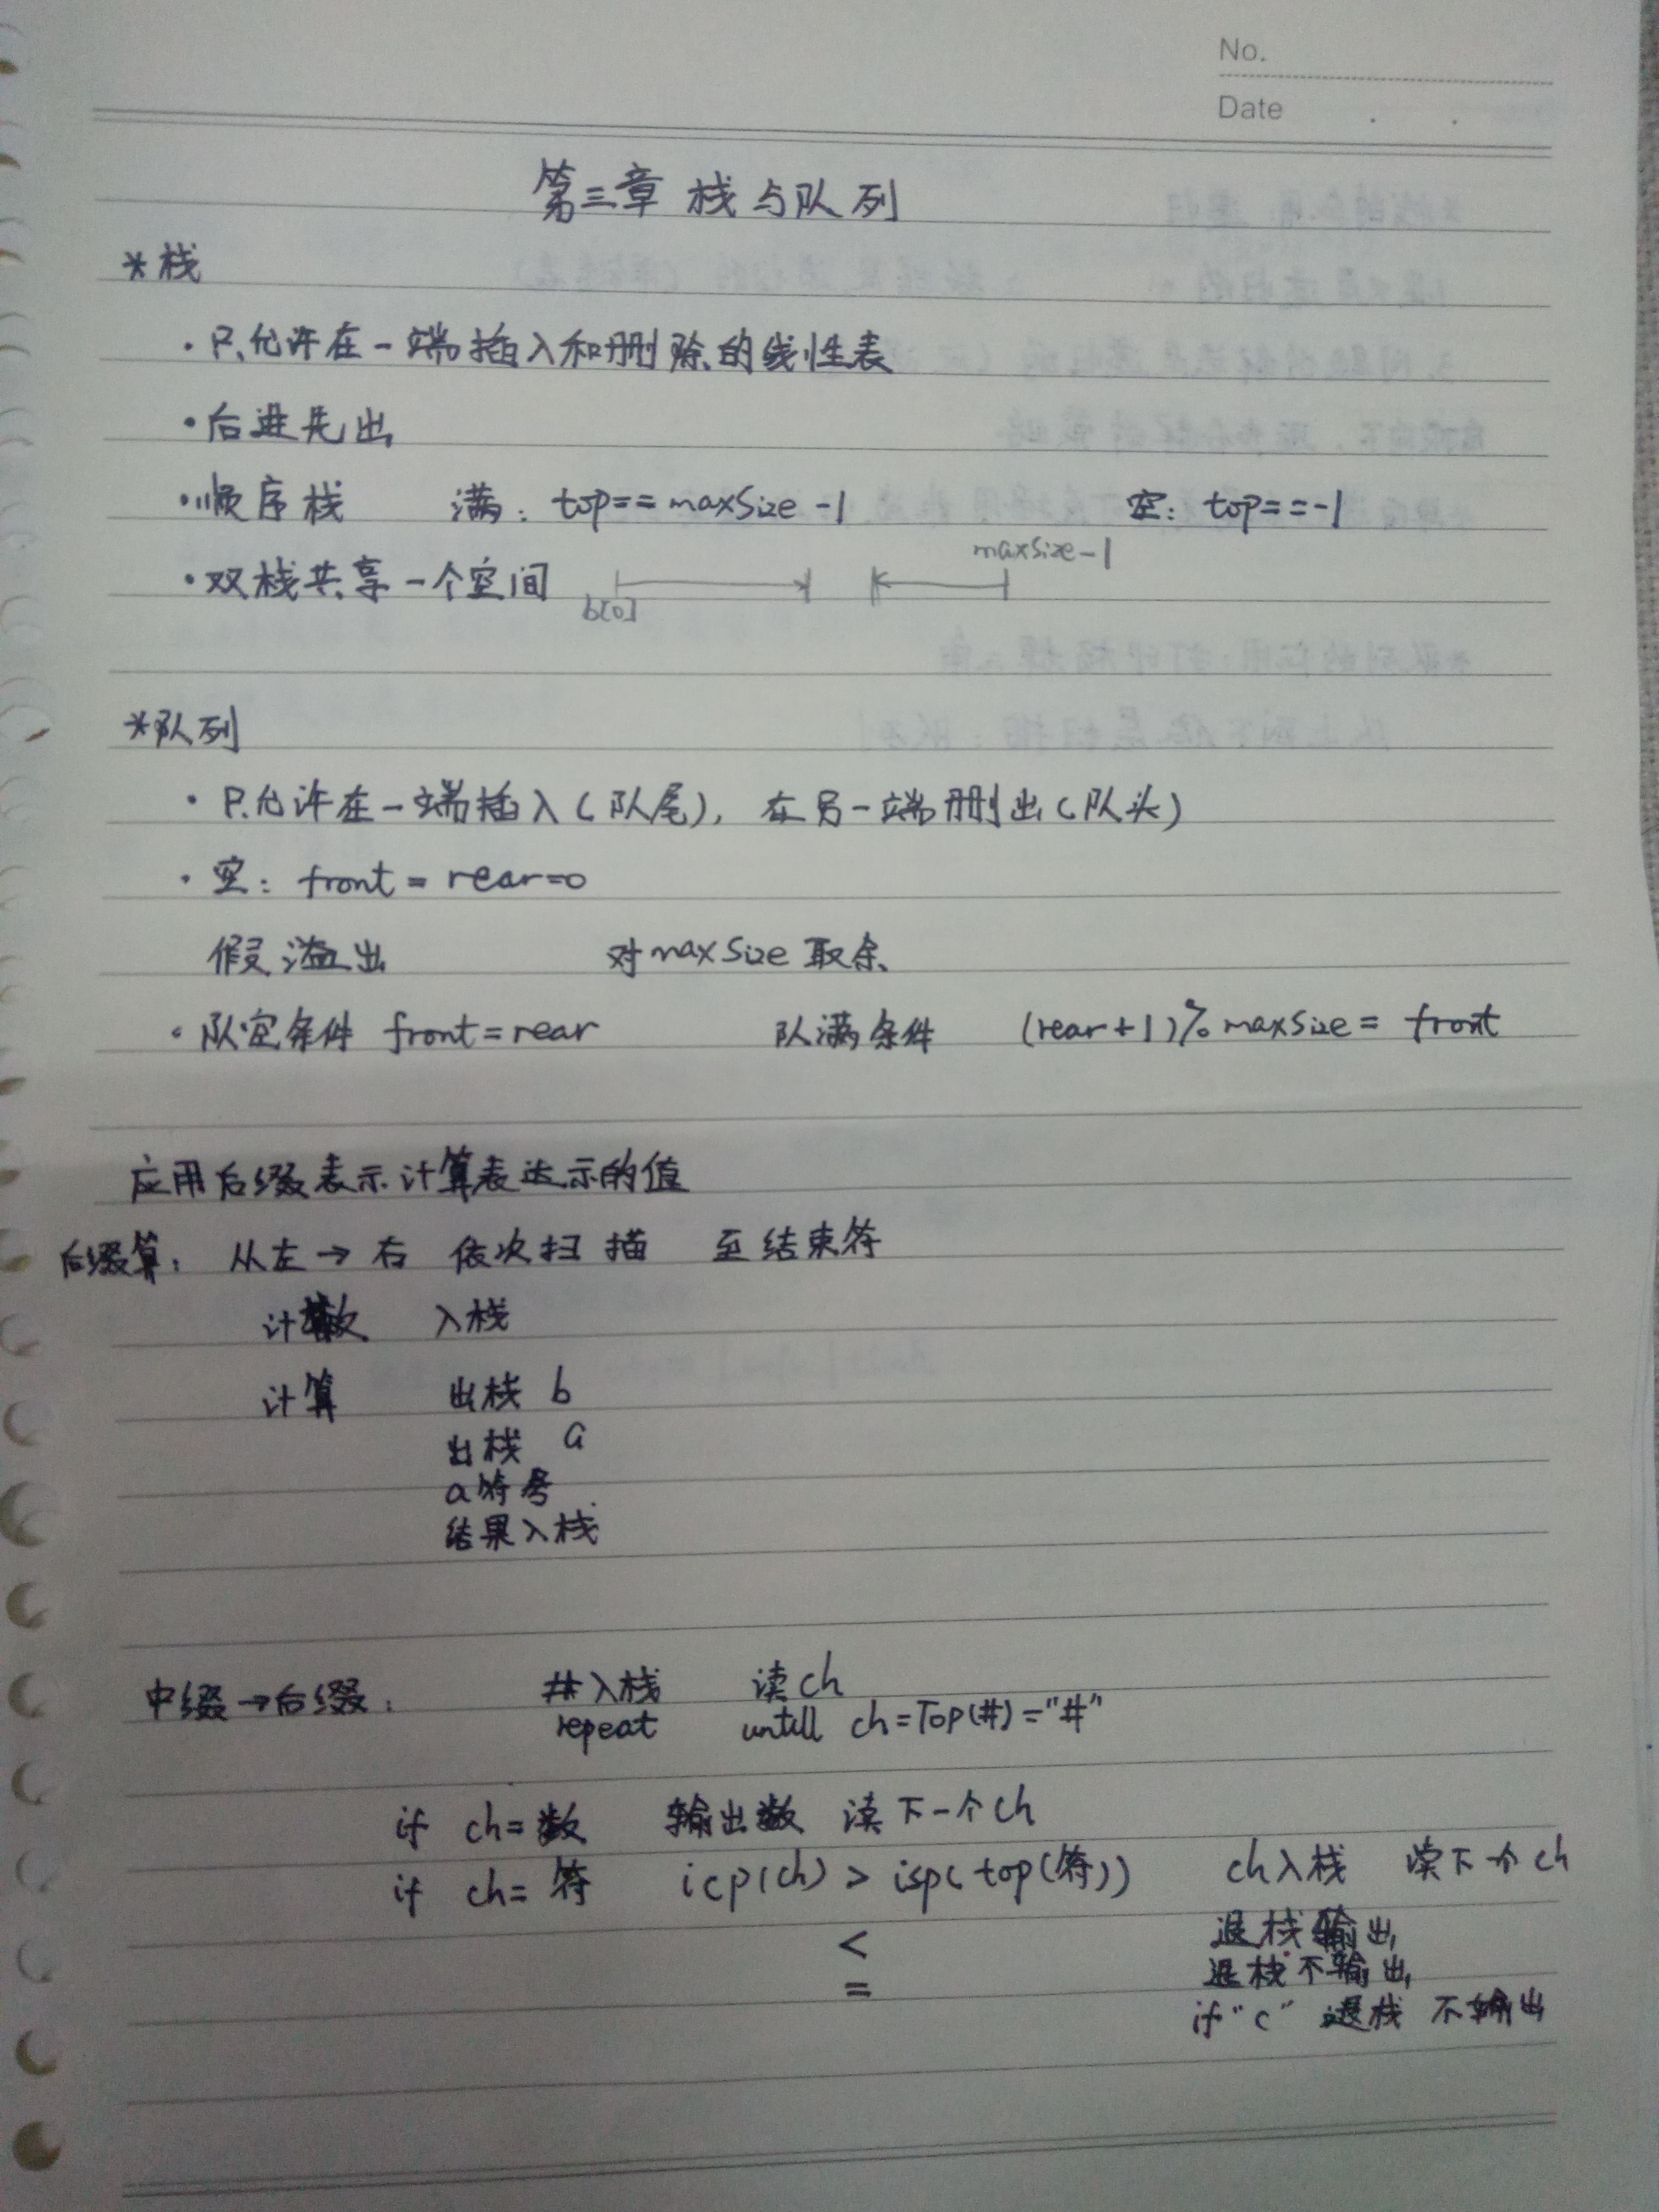 No.
Date . .
第三章 栈与队列
*栈
·只允许在一端插入和删除的线性表
·后进先出
·顺序栈 满：top==maxSize-1 空：top==-1
·双栈共享一个空间 b[0] maxSize-1
*队列
·只允许在一端插入(队尾)，在另一端删出(队头)
·空：front=rear=0
假溢出 对maxSize取余
·队空条件 front=rear 队满条件 (rear+1)%maxSize= front
应用后缀表示计算表达示的值
后缀算：从左→右 依次扫描 至结束符
计数 入栈
计算 出栈 b
出栈 a
a符号
结果入栈
中缀→后缀： #入栈 读ch
repeat untill ch=Top(#)="#"
if ch=数 输出数 读下一个ch
if ch=符 icp(ch) > isp(top(符)) ch入栈 读下个ch
< 退栈输出
= 退栈不输出
if"c" 退栈 不输出